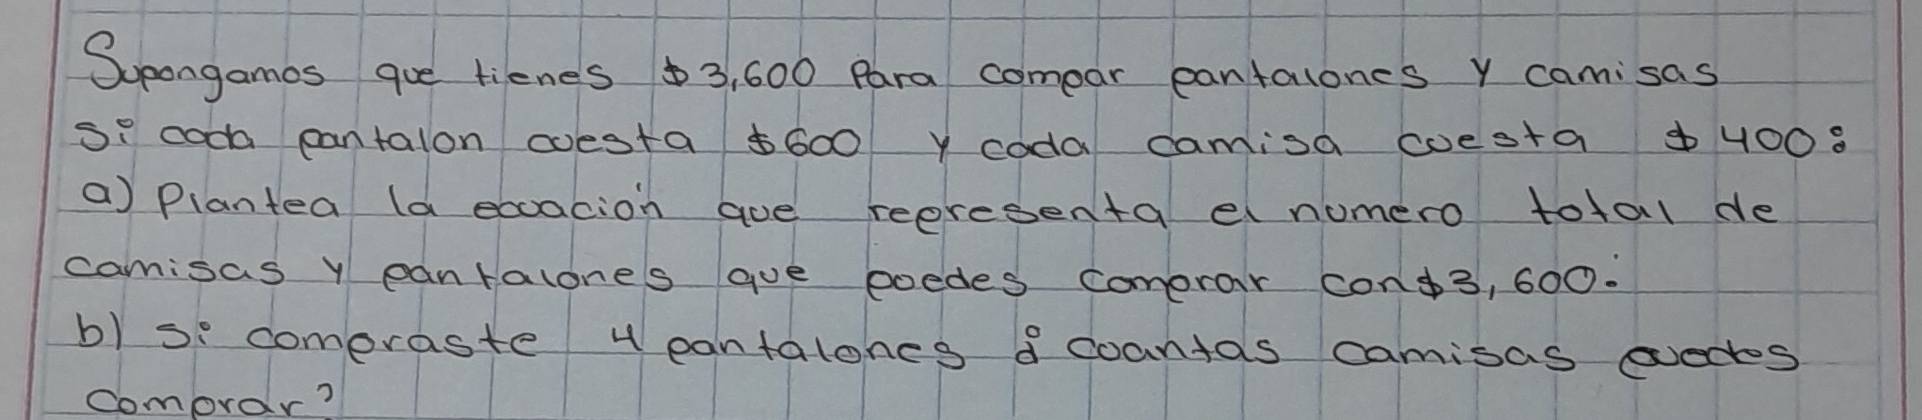 Supongamos que tienes $3,600 Para compar pantalones y camisas
si cada pantalon cuesta $600 y cada camisa cuesta $400:
a) Plantea la ecuación que representa el numero total de
camisas y pantalones que puedes comprar con $3,600.
b) si compraste 4 pantalones ¿ cuantas camisas puedes
comprar?